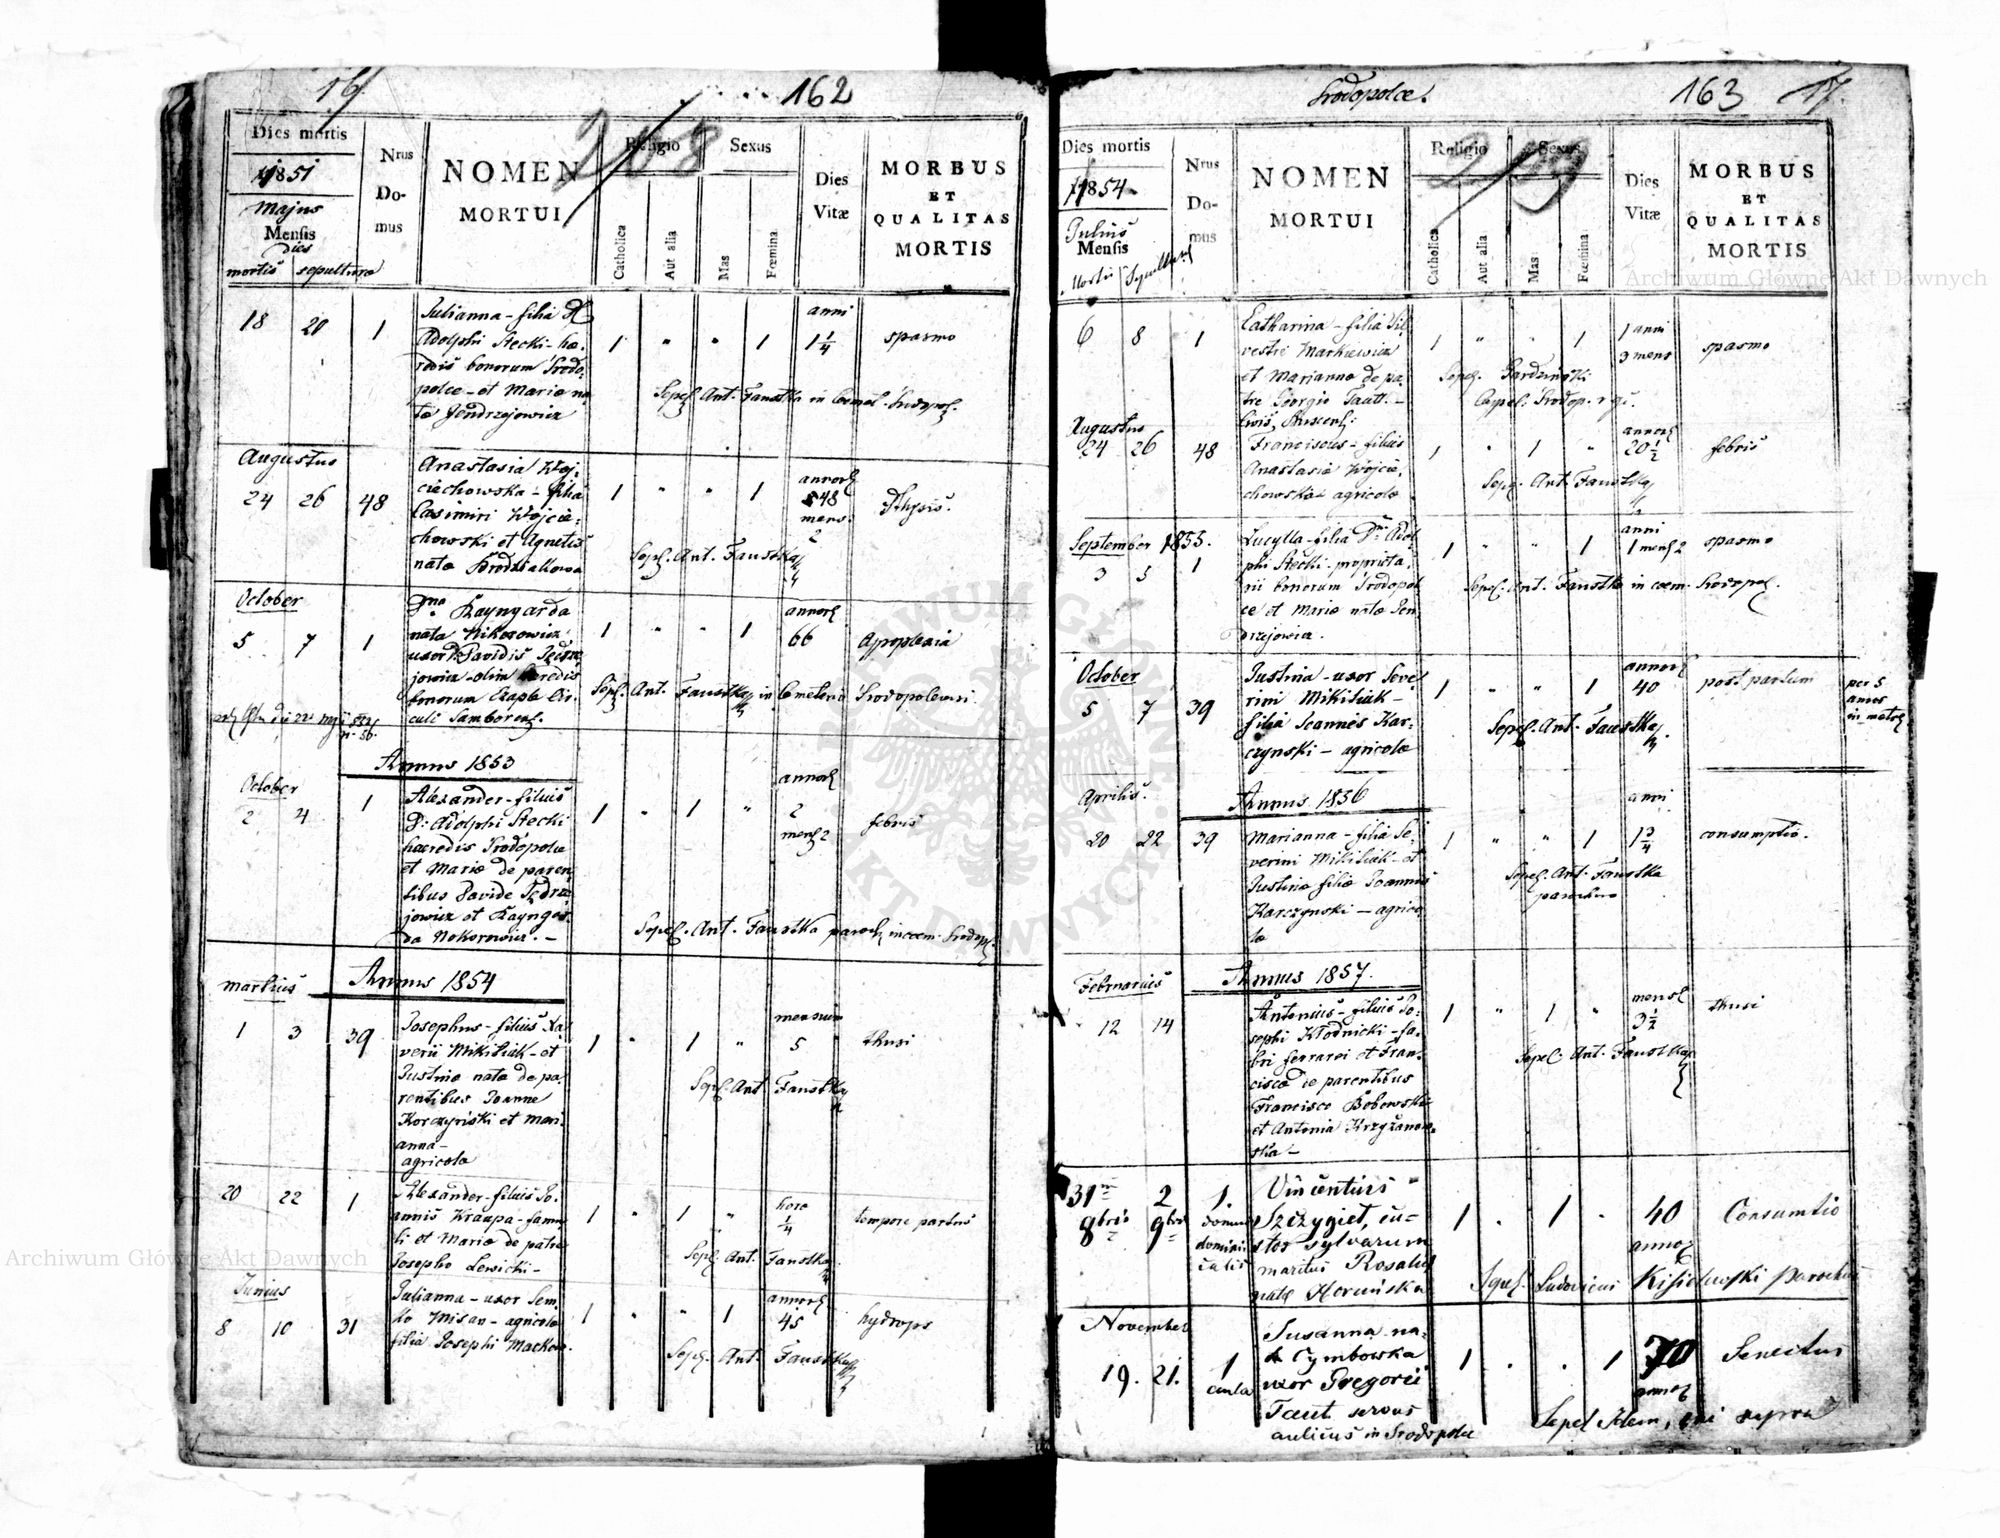 16
162
268
Dies mortis
1851
Majus
Mensis
dies
mortis sepulturæ
Nrus
Do-
mus
NOMEN
MORTUI
Religio
Catholica
Aut alia
Sexus
Mas
Fœmina
Dies
Vitæ
MORBUS
ET
QUALITAS
MORTIS
18 20 1
Julianna - filia D
Adolphi Stecki - hæ-
redis bonorum Srodo-
polce - et Mariæ na-
tæ Jendrzejowicz
1 " " 1
anni
1 1/4
spasmo
Sepel. Ant. Faustka in Coemet. Srodopol.
Augustus
24 26 48
Anastasia Woj-
ciechowska - filia
Casimiri Wojcie-
chowski et Agnetis
nata Brodziakowa
1 " " 1
annor
48
mens:
2
Pthysis.
Sepel. Ant. Faustka
October
5 7 1
Dna Kayngarda
nata Nikorowicz
uxor Davidis Jędrze
jowicz - olim heredis
bonorum Czaple Cir-
culi Samborens.
1 " " 1
annor
66
Apoplexia
Sepel. Ant. Faustka in Cmeterio Srodopolcensi
Annus 1853
October
2 4 1
Alexander - filius
D: Adolphi Stecki
hæredis Srodopolce
et Mariæ de paren-
tibus Davide Jędrze
jowicz et Kayngar-
da Nokorowicz. -
1 " 1 "
annor
2
mens 2
febris
Sepel. Ant. Faustka paroch in coem. Srodopol.
Annus 1854
Martius
1 3 39
Josephus - filius Xa-
verii Mikitiak - et
Justinæ nata de pa-
rentibus Joanne
Korczyński et Mari-
anna -
agricola
1 " 1 "
mensium
5
thusi
Sepel. Ant Faustka
20 22 1
Alexander - filius Jo-
annis Kraupa - famu-
li et Mariæ de patre
Josepho Lewicki -
1 " 1 "
hore
1/4
tempore partus
Sepel. Ant. Faustka
Junius
8 10 31
Julianna - uxor Sem-
ko Misan - agricola
filia Josephi Mackow.
1 " " 1
annor
45
hydrops
Sepel. Ant. Faustka
Srodopolce.
163
17.
269
Dies mortis
1854
Julius
Mensis
Mortis Sepulturæ
Nrus
Do-
mus
NOMEN
MORTUI
Religio
Catholica
Aut alia
Sexus
Mas
Fœmina
Dies
Vitæ
MORBUS
ET
QUALITAS
MORTIS
6 8 1
Catharina - filia Sil-
vestri Markiewicz
et Marianna de pa-
tre Georgio Taut. -
1 " " 1
1 anni
3 mens
spasmo
Sepel. Gardziński
Capel: Srodop. r gr.
Augustus
24 26 48
Franciscus - filius
Anastasiæ Wojcie-
chowska agricola
1 " 1 "
annor
20 1/2
febris
Sepel. Ant Faustka
September 1855.
3 5 1
Lucylla - filia Dni Adol
phi Stecki - proprieta-
rii bonorum Srodopol
ce et Mariæ natæ Jen
drzejowicz.
1 " " 1
anni
1 mens 2
spasmo
Sepel. Ant. Faustka in coem. Srodopol.
October
5 7 39
Justina - uxor Seve-
rini Mikitiak -
filia Joannes Kar-
czynski - agricola
1 " " 1
annor
40
post partum
per 5
annos
in matr
Sepel. Ant. Faustka.
Annus 1856
Aprilis.
20 22 39
Marianna - filia Se-
verini Mikitiak - et
Justinæ filiæ Joannis
Karczynski - agrico
læ
1 " " 1
anni
1 3/4
consumptio.
Sepel. Ant. Faustka
parochus
Annus 1857.
Februarius
12 14
Antonius - filius Jo-
sephi Kłodnicki - fa-
bri ferrarei et Fran-
ciscæ de parentibus
Francisco Bobowski
et Antonia Krzyżanow-
ska -
1 " 1 "
mens
3 1/2
thusi
Sepel. Ant. Faustka
31 8bris 2 9bris 1.
domus
domini
calis
Vincentius
Szczygieł, cu-
stos sylvarum
maritus Rosaliæ
natæ Horuńska
1 . 1 .
40
annor
Consumtio
Sepel. Ludovicus Kisielewski Parochus
November
19. 21. 1
aula
Susanna na-
ta Cymbowska
uxor Gregorii
Taut servus
aulicus in Srodopolce
1 . . 1
70
annor
Senectus
Sepel Idem, qui supra